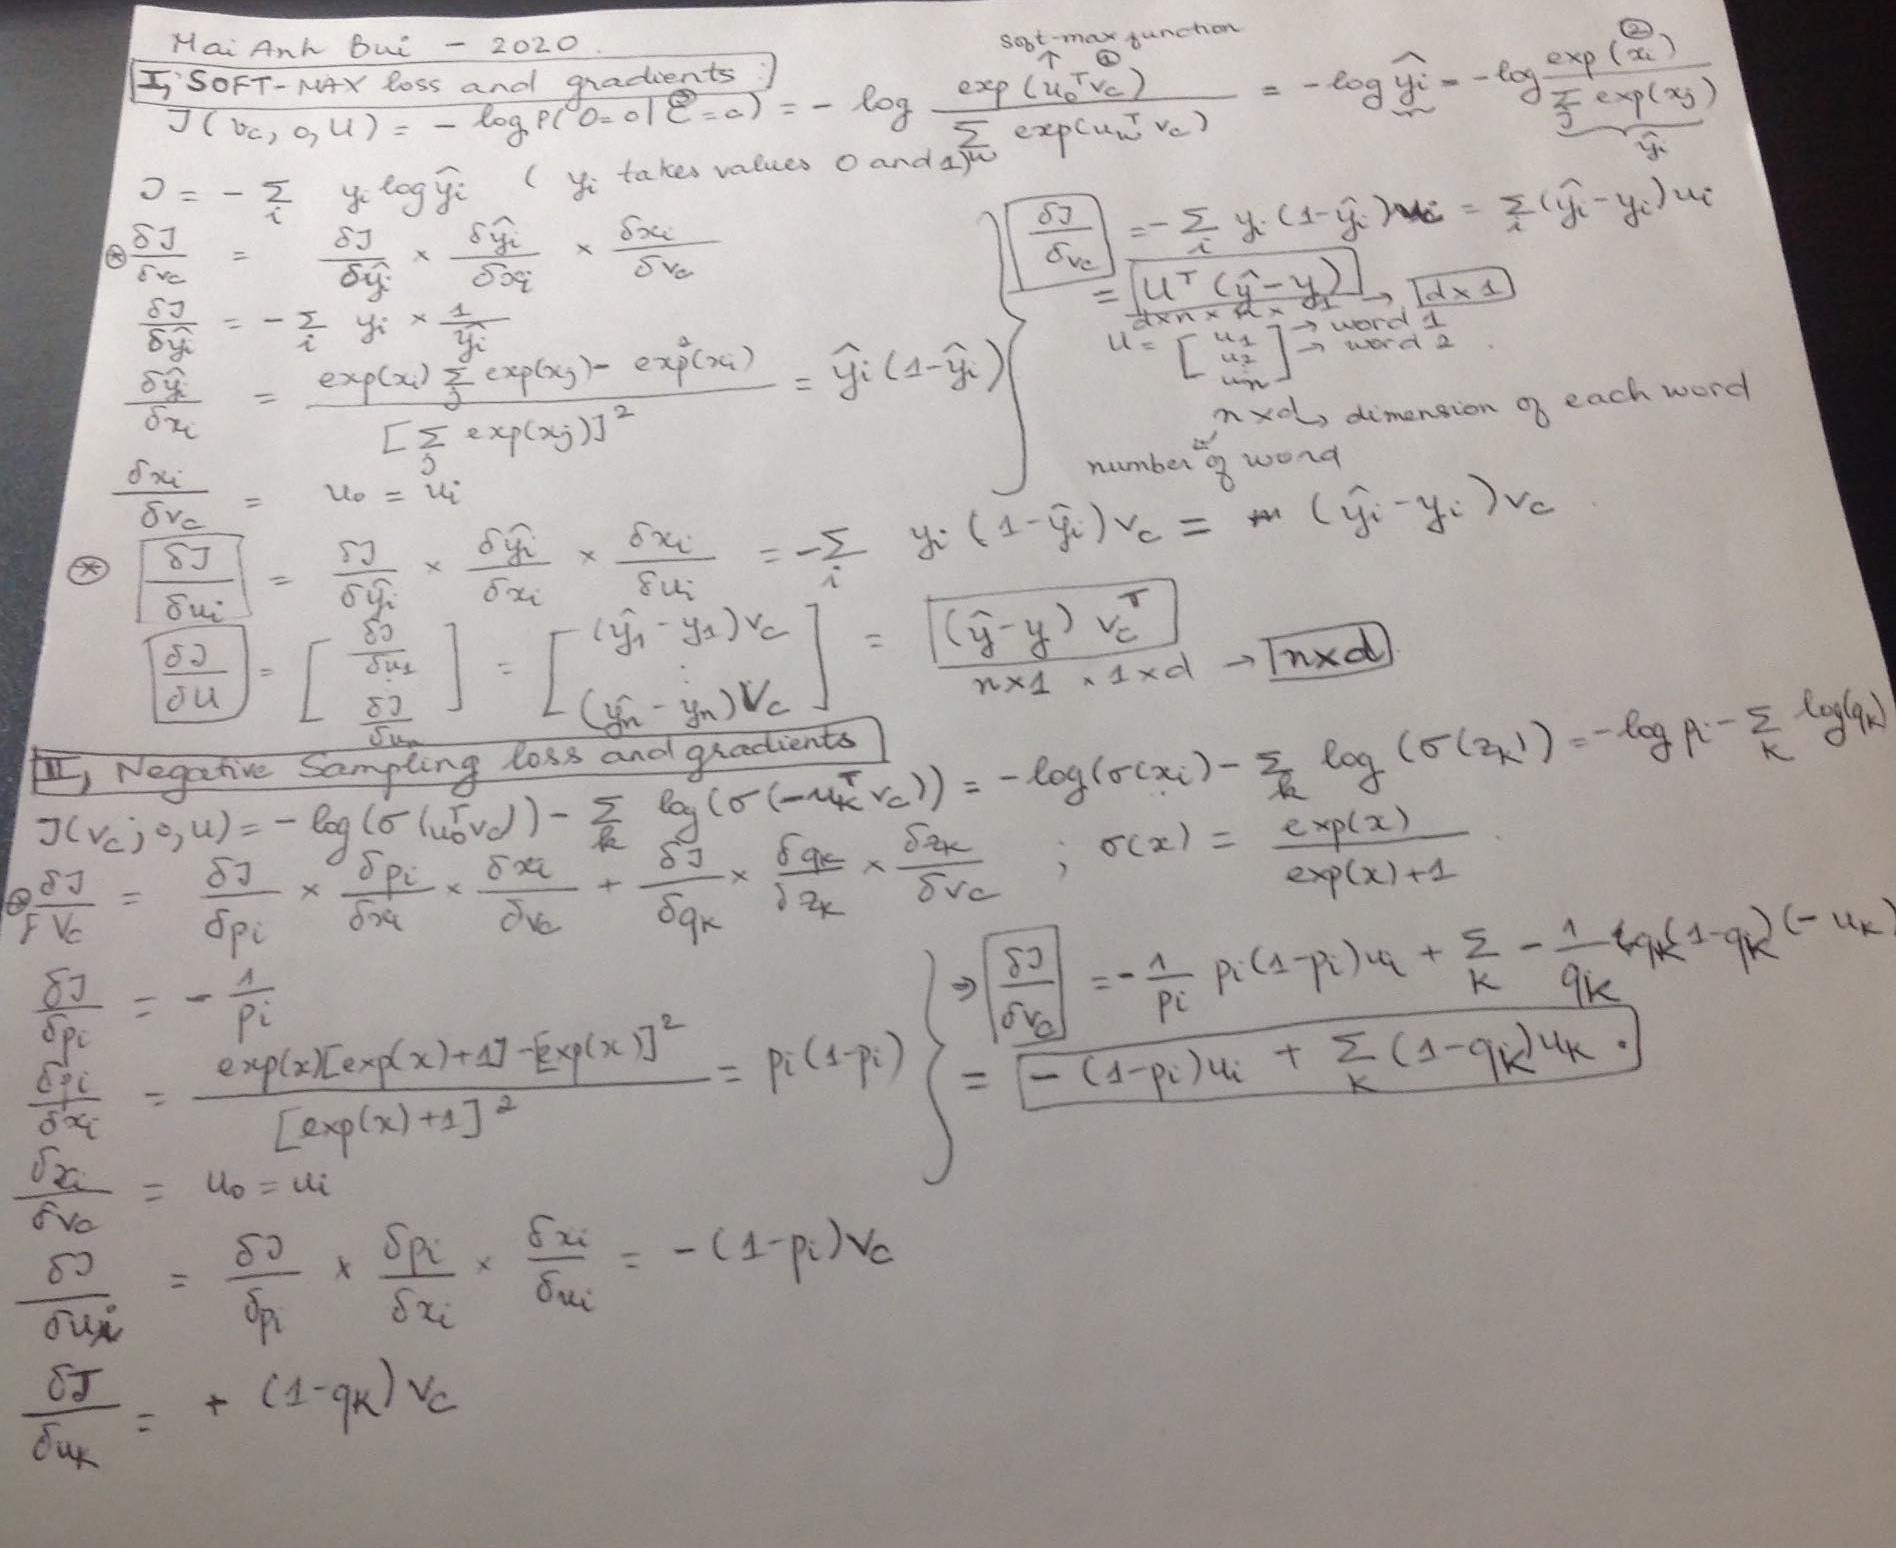 Mai Anh Bui - 2020.
I, SOFT-MAX loss and gradients:
soft-max function
↑ ① ②
J(v_c, o, U) = - log P(O=o | C=c) = - log exp(u_o^T v_c) / Σ_w exp(u_w^T v_c) = - log ŷ_i = - log exp(x_i) / Σ_j exp(x_j)
ŷ_i
J = - Σ_i y_i log ŷ_i ( y_i takes values 0 and 1)
⊛ δJ/δv_c = δJ/δŷ_i × δŷ_i/δx_i × δx_i/δv_c
δJ/δŷ_i = - Σ_i y_i × 1/ŷ_i
δŷ_i/δx_i = (exp(x_i) Σ_j exp(x_j) - exp²(x_i)) / [Σ_j exp(x_j)]² = ŷ_i(1-ŷ_i)
δx_i/δv_c = u_o = u_i
δJ/δv_c = - Σ_i y_i (1-ŷ_i) u_i = Σ_i (ŷ_i - y_i) u_i
= U^T (ŷ - y) → d×1
d×n × n × 1
U = [ u_1 u_2 u_n ] → word 1
→ word 2
n×d → dimension of each word
number of word
⊛ δJ/δu_i = δJ/δŷ_i × δŷ_i/δx_i × δx_i/δu_i = - Σ_i y_i (1-ŷ_i) v_c = (ŷ_i - y_i) v_c
δJ/δU = [ δJ/δu_1 . δJ/δu_n ] = [ (ŷ_1 - y_1) v_c . (ŷ_n - y_n) v_c ] = (ŷ - y) v_c^T
n×1 × 1×d → n×d
II, Negative Sampling loss and gradients
J(v_c; o, U) = - log(σ(u_o^T v_c)) - Σ_k log(σ(-u_k^T v_c)) = - log(σ(x_i)) - Σ_k log(σ(z_k)) = - log p_i - Σ_k log(q_k)
⊛ δJ/δv_c = δJ/δp_i × δp_i/δx_i × δx_i/δv_c + δJ/δq_k × δq_k/δz_k × δz_k/δv_c ; σ(x) = exp(x) / exp(x)+1
δJ/δp_i = - 1/p_i
δp_i/δx_i = exp(x)[exp(x)+1] - [exp(x)]² / [exp(x)+1]² = p_i(1-p_i)
δx_i/δv_c = u_o = u_i
⇒ δJ/δv_c = - 1/p_i p_i(1-p_i) u_i + Σ_k - 1/q_k q_k(1-q_k)(-u_k)
= - (1-p_i) u_i + Σ_k (1-q_k) u_k .
δJ/δu_i = δJ/δp_i × δp_i/δx_i × δx_i/δu_i = - (1-p_i) v_c
δJ/δu_k = + (1-q_k) v_c